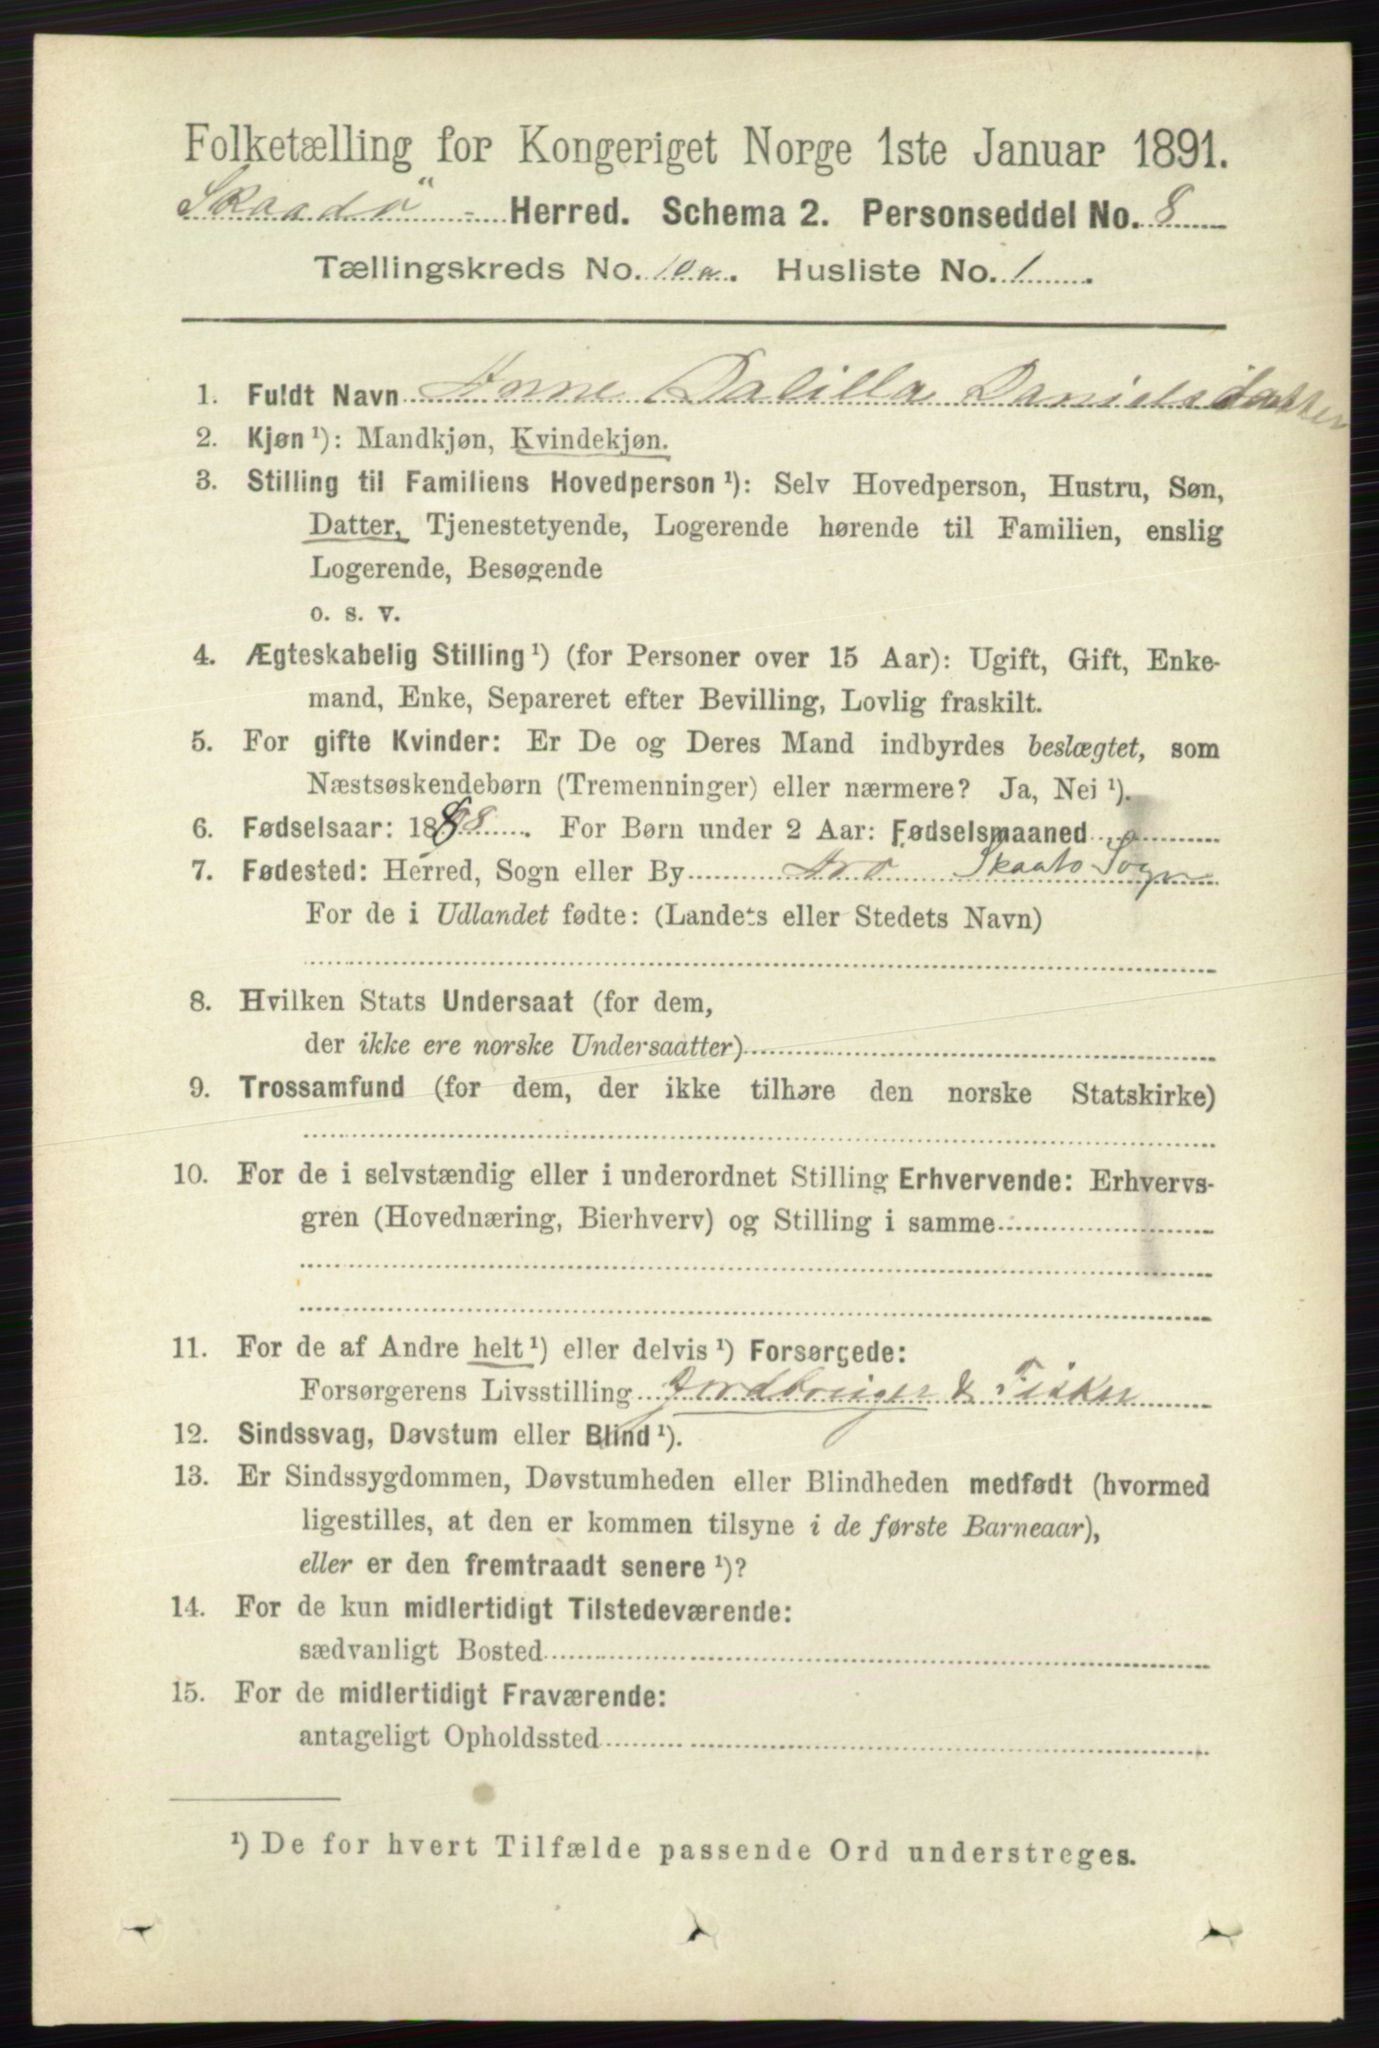 Folketælling for Kongeriget Norge 1ste Januar 1891.
Skaadö - Herred. Schema 2. Personseddel No. 8
Tællingskreds No. 10a. Husliste No. 1.
1. Fuldt Navn Anne Dalilla Danielsdatter
2. Kjøn ¹): Mandkjøn, Kvindekjøn.
3. Stilling til Familiens Hovedperson ¹): Selv Hovedperson, Hustru, Søn,
Datter, Tjenestetyende, Logerende hørende til Familien, enslig
Logerende, Besøgende
o. s. v.
4. Ægteskabelig Stilling ¹) (for Personer over 15 Aar): Ugift, Gift, Enke-
mand, Enke, Separeret efter Bevilling, Lovlig fraskilt.
5. For gifte Kvinder: Er De og Deres Mand indbyrdes beslægtet, som
Næstsøskendebørn (Tremenninger) eller nærmere? Ja, Nei ¹).
6. Fødselsaar: 1888. For Børn under 2 Aar: Fødselsmaaned
7. Fødested: Herred, Sogn eller By Arø Skaato Sogn
For de i Udlandet fødte: (Landets eller Stedets Navn)
8. Hvilken Stats Undersaat (for dem,
der ikke ere norske Undersaatter)
9. Trossamfund (for dem, der ikke tilhøre den norske Statskirke)
10. For de i selvstændig eller i underordnet Stilling Erhvervende: Erhvervs-
gren (Hovednæring, Bierhverv) og Stilling i samme
11. For de af Andre helt ¹) eller delvis ¹) Forsørgede:
Forsørgerens Livsstilling Jordbruger & Fisker
12. Sindssvag, Døvstum eller Blind ¹).
13. Er Sindssygdommen, Døvstumheden eller Blindheden medfødt (hvormed
ligestilles, at den er kommen tilsyne i de første Barneaar),
eller er den fremtraadt senere ¹)?
14. For de kun midlertidigt Tilstedeværende:
sædvanligt Bosted
15. For de midlertidigt Fraværende:
antageligt Opholdssted
¹) De for hvert Tilfælde passende Ord understreges.